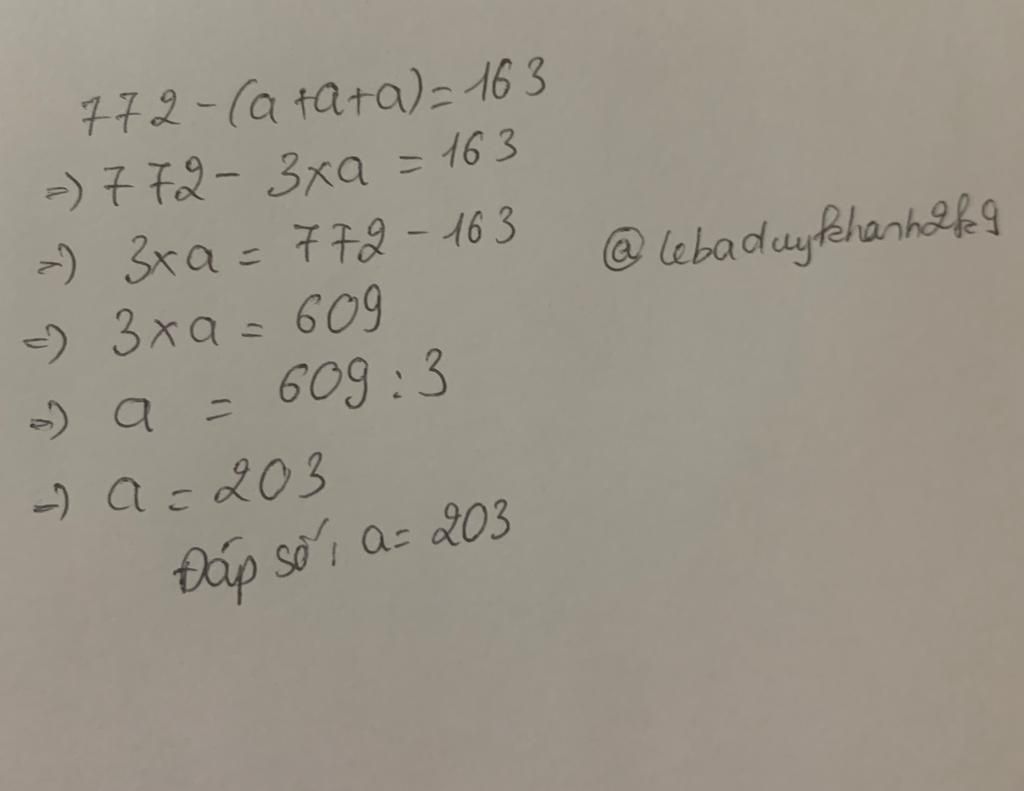 772-(a+a+a)=163
=) 772- 3xa = 163
=) 3xa = 772-163
@lebaduykhanh2k9
=) 3xa = 609
=) a = 609:3
=) a = 203
Đáp số, a= 203